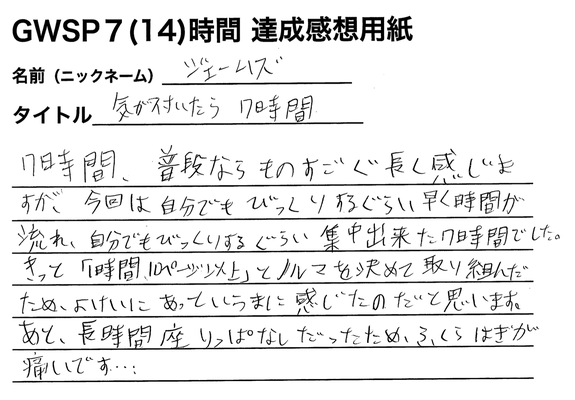 GWSP7(14)時間 達成感想用紙
名前（ニックネーム） ジェームズ
タイトル 気が付いたら 7時間
7時間、普段ならものすごぐ長く感じま
すが、今回は自分でもびっくりするぐらい早く時間が
流れ、自分でもびっくりするぐらい集中出来た7時間でした。
きっと「1時間、10ページ以上」とノルマを決めて取り組んだ
ため、よけいにあっというまに感じたのだと思います。
あと、長時間座りっぱなしだったため、ふくらはぎが
痛いです…。